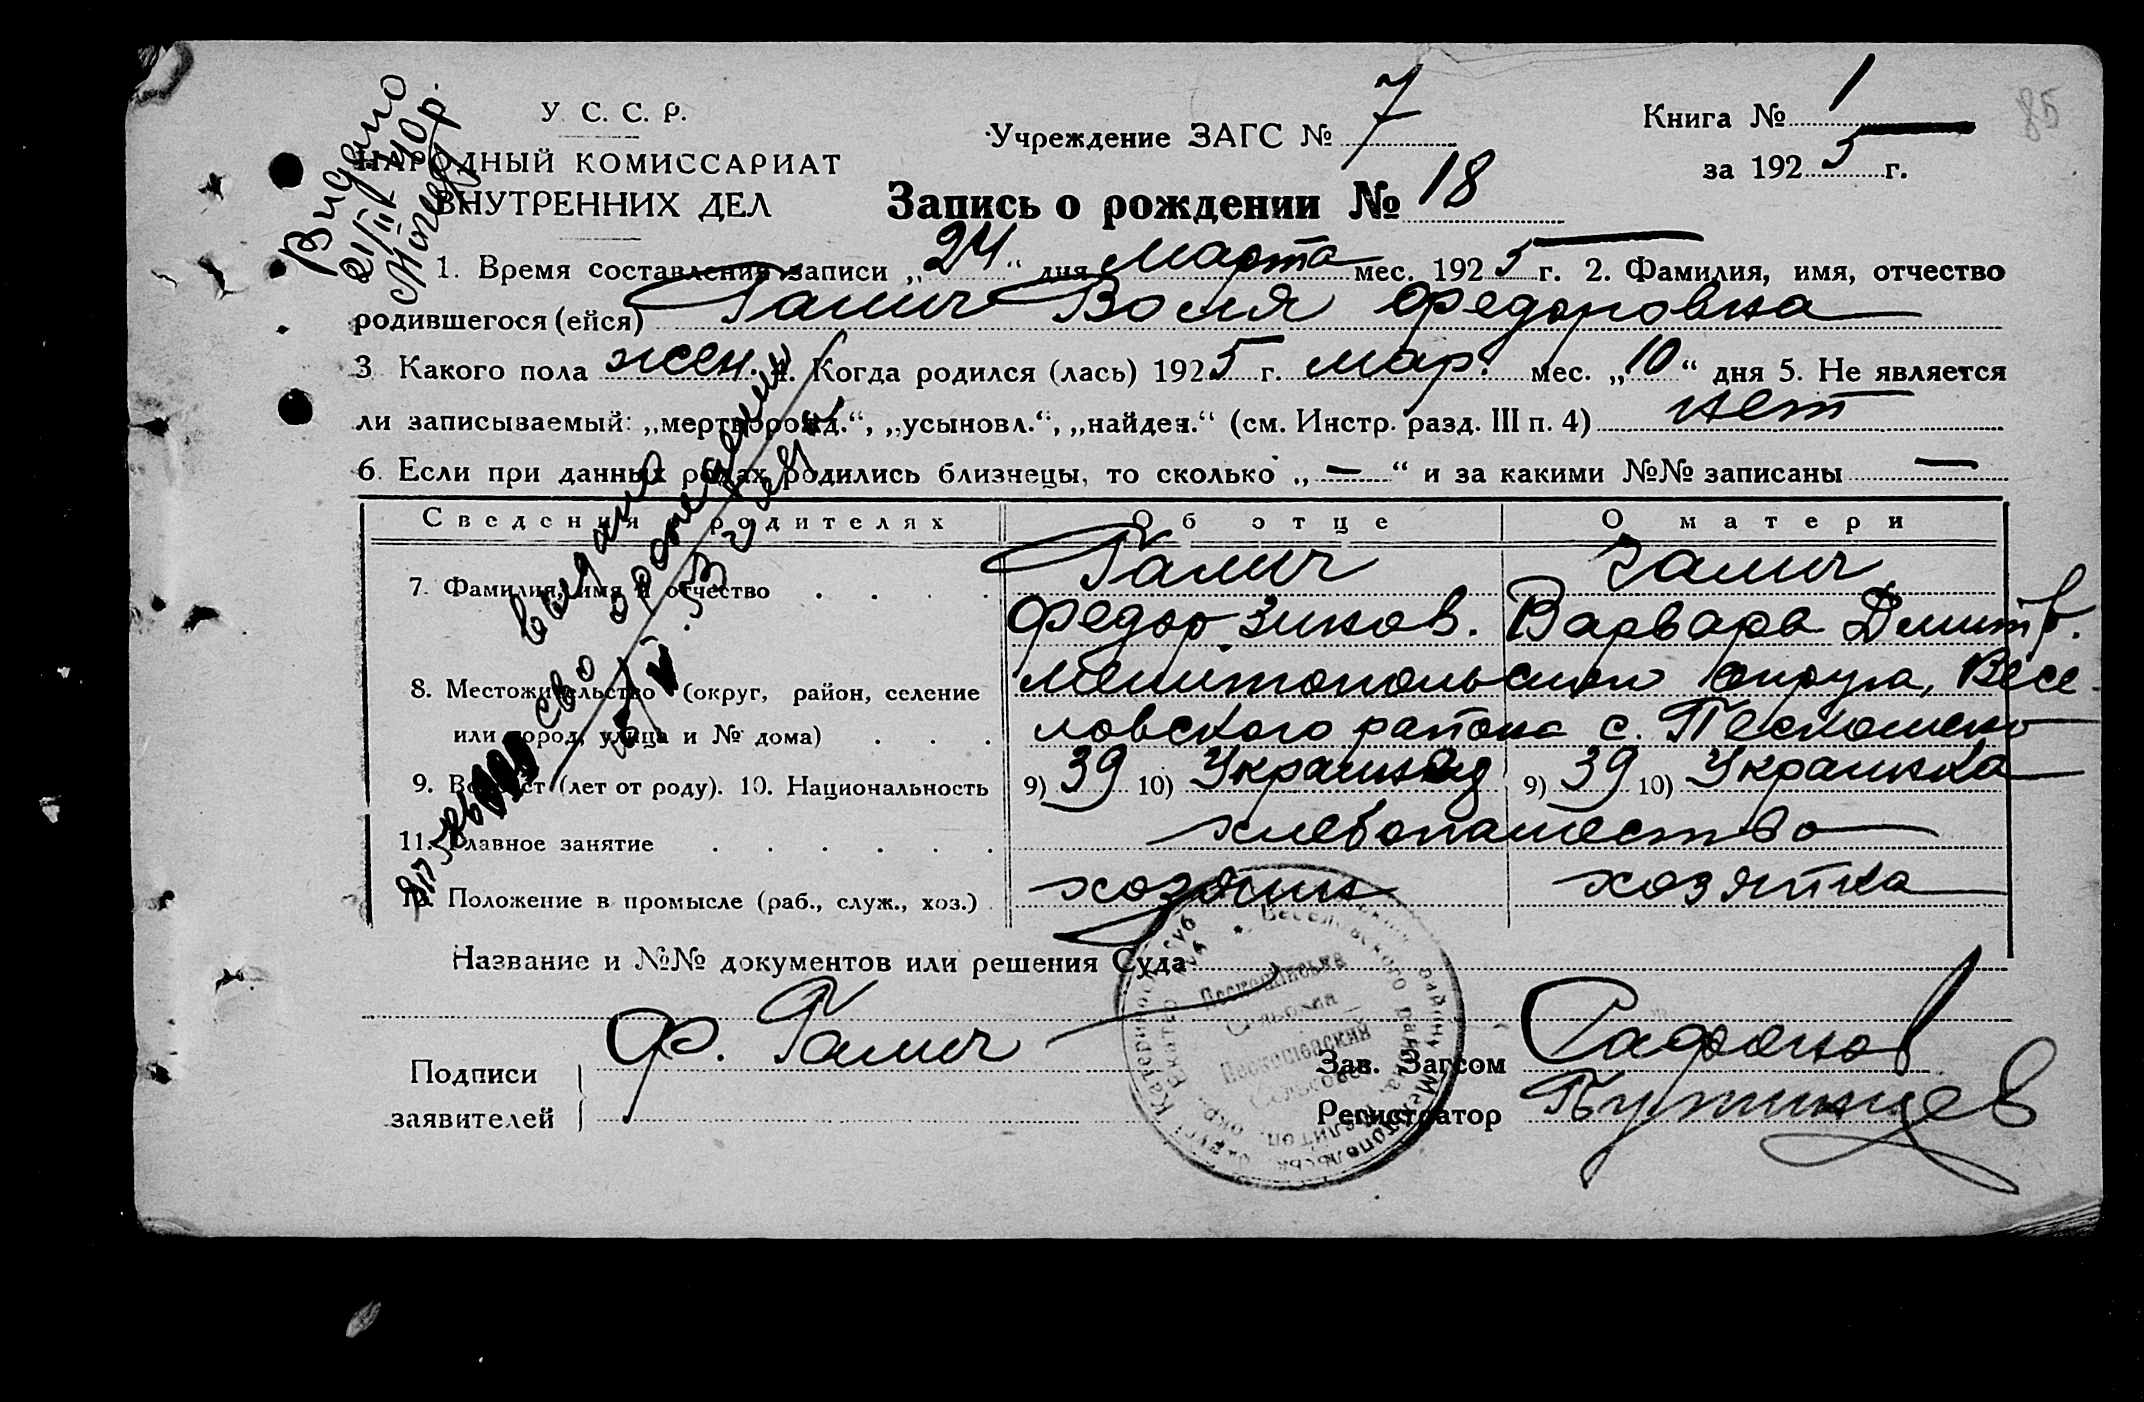 85
У. С. С. Р.
НАРОДНЫЙ КОМИССАРИАТ
ВНУТРЕННИХ ДЕЛ
Учреждение ЗАГС № 7
Книга № 1
за 1925 г.
Запись о рождении № 18
Видано
1. Время составления записи „24“ дня марта мес. 1925 г. 2. Фамилия, имя, отчество
родившегося (ейся) Галич Воля Федоровна
3 Какого пола жен. 4. Когда родился (лась) 1925 г. мар. мес. „10“ дня 5. Не является
ли записываемый: „мертворожд.“, „усыновл.“, „найден.“ (см. Инстр. разд. III п. 4) нет
6. Если при данных родах родились близнецы, то сколько „—“ и за какими №№ записаны —
Сведения о родителях Об отце О матери
7. Фамилия, имя и отчество Галич Галич
Федор Зинов. Варвара Дмитр.
8. Местожительство (округ, район, селение Мелитопольский округа, Весе-
или город, улица и № дома) ловского района с. Пескошено
9. Возраст (лет от роду). 10. Национальность 9) 39 10) Украинец 9) 39 10) Украинка
11. Главное занятие хлебопашество
12. Положение в промысле (раб., служ., хоз.) хозяин хозяйка
выдано
Название и №№ документов или решения Суда
Подписи Ф. Галич
заявителей
Зав. Загсом Сафонов
Регистратор